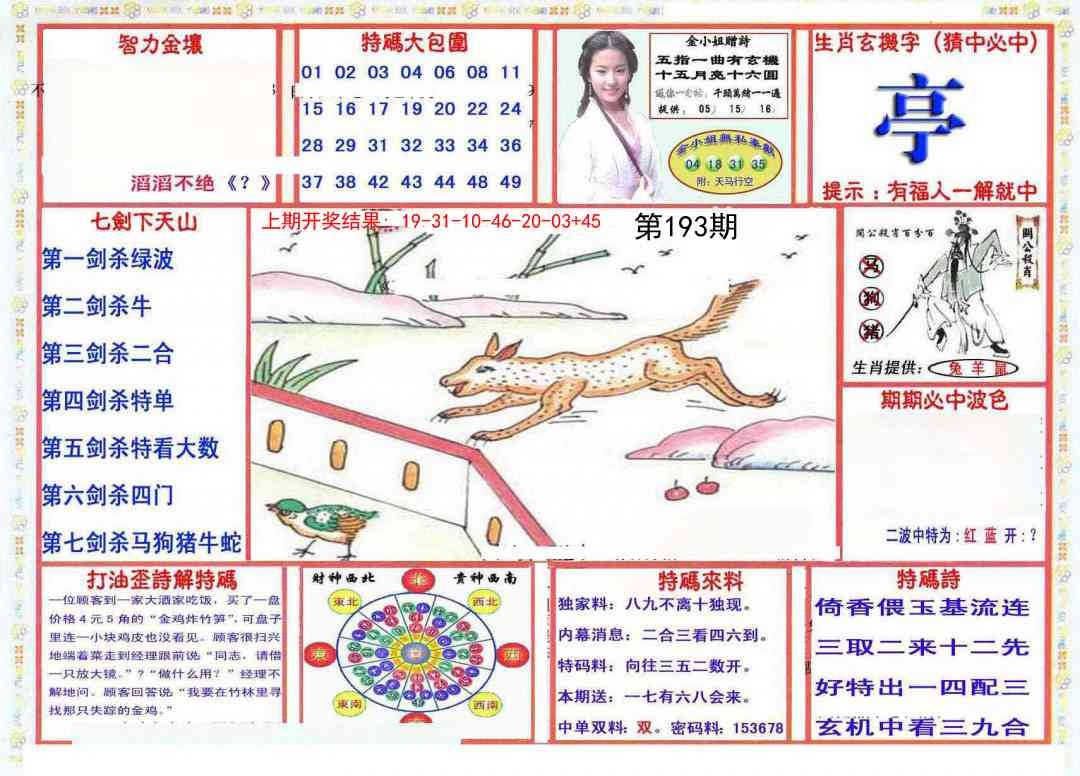 智力金壤
滔滔不绝《？》
特碼大包圍
01 02 03 04 06 08 11
15 16 17 19 20 22 24
28 29 31 32 33 34 36
37 38 42 43 44 48 49
金小姐贈詩
五指一曲有玄機
十五月亮十六圓
千頭萬緒一一過
提供：05 15 16
金小姐無私奉獻
04 18 31 35
附：天马行空
生肖玄機字（猜中必中）
亭
提示：有福人一解就中
七劍下天山
第一剑杀绿波
第二剑杀牛
第三剑杀二合
第四剑杀特单
第五剑杀特看大数
第六剑杀四门
第七剑杀马狗猪牛蛇
上期开奖结果：19-31-10-46-20-03+45
第193期
關公殺肖百分百
關公殺肖
马
狗
猪
生肖提供：兔 羊 鼠
期期必中波色
二波中特为：红 蓝 开：？
打油歪詩解特碼
一位顾客到一家大酒家吃饭，买了一盘
价格4元5角的“金鸡炸竹笋”，可盘子
里连一小块鸡皮也没看见。顾客很扫兴
地端着菜走到经理跟前说“同志，请借
一只放大镜。”？“做什么用？”经理不
解地问。顾客回答说“我要在竹林里寻
找那只失踪的金鸡。”
財神西北 貴神西南
北
東北 西北
東 西
東南 西南
特碼來料
独家料：八九不离十独现。
内幕消息：二合三看四六到。
特码料：向往三五二数开。
本期送：一七有六八会来。
中单双料：双。密码料：153678
特碼詩
倚香偎玉基流连
三取二来十二先
好特出一四配三
玄机中看三九合